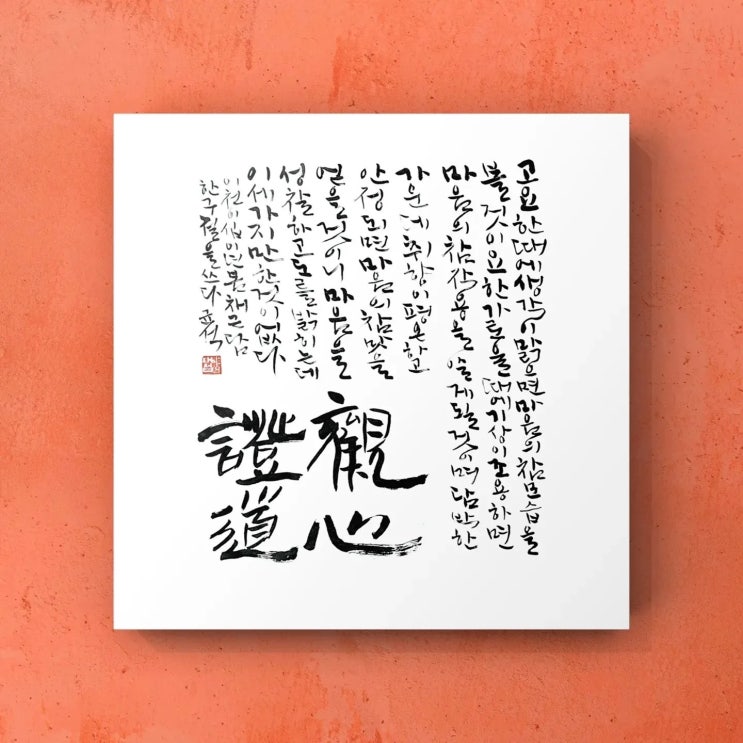 고요한때에생각이맑으면마음의참모습을
볼것이요한가로울때에기상이조용하면
마음의참작용을알게될것이며담박한
가운데취향이평온하고
안정되면마음의참맛을
얻을것이니마음을
성찰하고도를밝히는데
이세가지만한것이없다
이천이십이년봄채근담
한구절을쓰다
觀心
證道